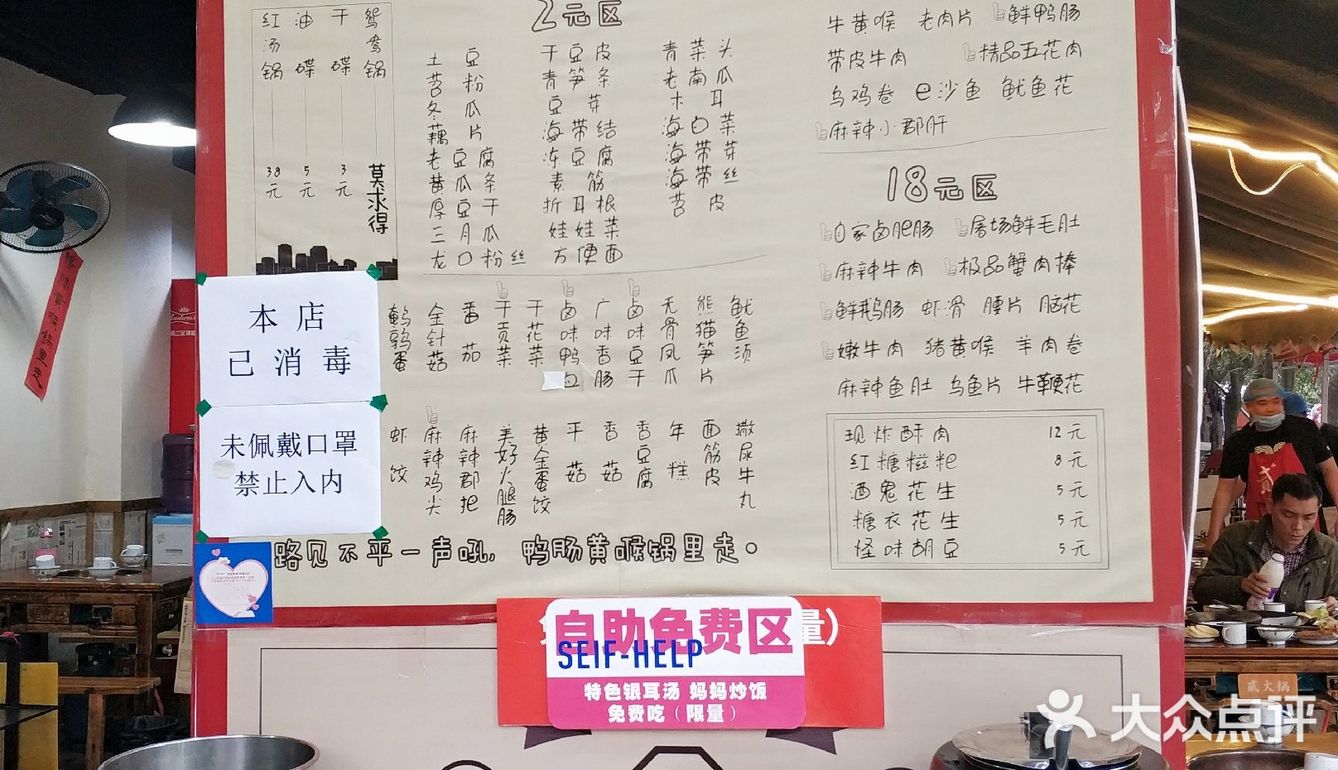 红汤锅 38元
油碟 5元
干碟 3元
鸳鸯锅 莫求得
2元区
土豆 干豆皮 青菜头
苕粉 青笋条 老南瓜
冬瓜 豆芽 木耳
藕片 海带结 海白菜
老豆腐 冻豆腐 海带芽
黄瓜条 素筋 海带丝
厚豆干 折耳根 苕皮
三月瓜 娃娃菜
龙口粉丝 方便面
鹌鹑蛋
金针菇
番茄
干贡菜
干花菜
卤味鸭血
广味香肠
卤味豆干
无骨凤爪
熊猫笋片
鱿鱼须
虾饺
麻辣鸡尖
麻辣郡把
美好火腿肠
黄金蛋饺
平菇
香菇
香豆腐
年糕
面筋皮
撒尿牛丸
路见不平一声吼，鸭肠黄喉锅里走。
牛黄喉 老肉片 鲜鸭肠
带皮牛肉 精品五花肉
乌鸡卷 e沙鱼 鱿鱼花
麻辣小郡肝
18元区
自家卤肥肠 屠场鲜毛肚
麻辣牛肉 极品蟹肉棒
鲜鹅肠 虾滑 腰片 脑花
嫩牛肉 猪黄喉 羊肉卷
麻辣鱼肚 乌鱼片 牛鞭花
现炸酥肉 12元
红糖糍粑 8元
酒鬼花生 5元
糖衣花生 5元
怪味胡豆 5元
本店
已消毒
未佩戴口罩
禁止入内
自助免费区
量）
SEIF-HELP
特色银耳汤 妈妈炒饭
免费吃（限量）
贰火锅
大众点评